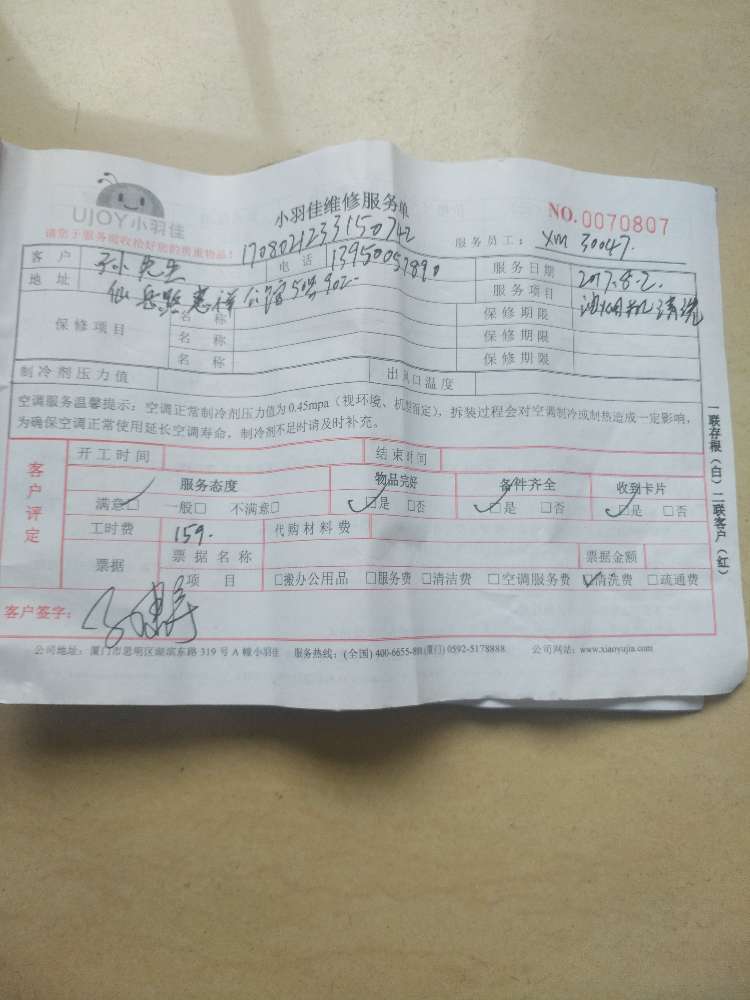 UJOY小羽佳
小羽佳维修服务单
NO.0070807
请您于服务前收拾好您的贵重物品!
1708021233150742
服务员工: XM 30047.
客户 孙先生 电话 13950057890 服务日期 2017.8.2.
地址 仙岳路惠祥公馆5号902 服务项目 油烟机清洗
保修项目 名称 保修期限
名称 保修期限
名称 保修期限
制冷剂压力值 出风口温度
空调服务温馨提示:空调正常制冷剂压力值为0.45mpa(视环境、机型而定),拆装过程会对空调制冷或制热造成一定影响,
为确保空调正常使用延长空调寿命,制冷剂不足时请及时补充。
客户评定
开工时间 结束时间
服务态度 物品完好 备件齐全 收到卡片
满意□ 一般□ 不满意□ □是 □否 □是 □否 □是 □否
工时费 159. 代购材料费
票据 票据名称 票据金额
项目 □搬办公用品 □服务费 □清洁费 □空调服务费 □清洗费 □疏通费
客户签字:
公司地址:厦门市思明区湖滨东路319号A幢小羽佳 服务热线:(全国)400-6655-891(厦门)0592-5178888 公司网站:www.xiaoyujia.com
一联存根(白)二联客户(红)